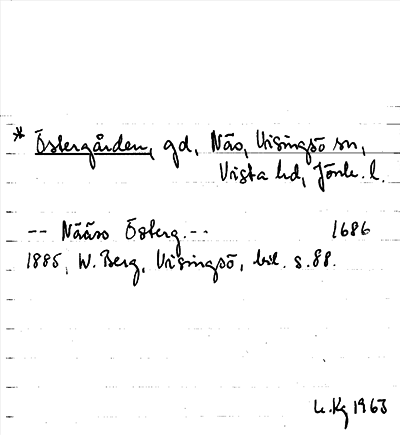 * Östergården, gd, Näs, Visingsö sn,
Vista hd, Jönk. l.
-- Nääss Österg. -- 1686
1885, W. Berg, Visingsö, bil. s. 88.
1963